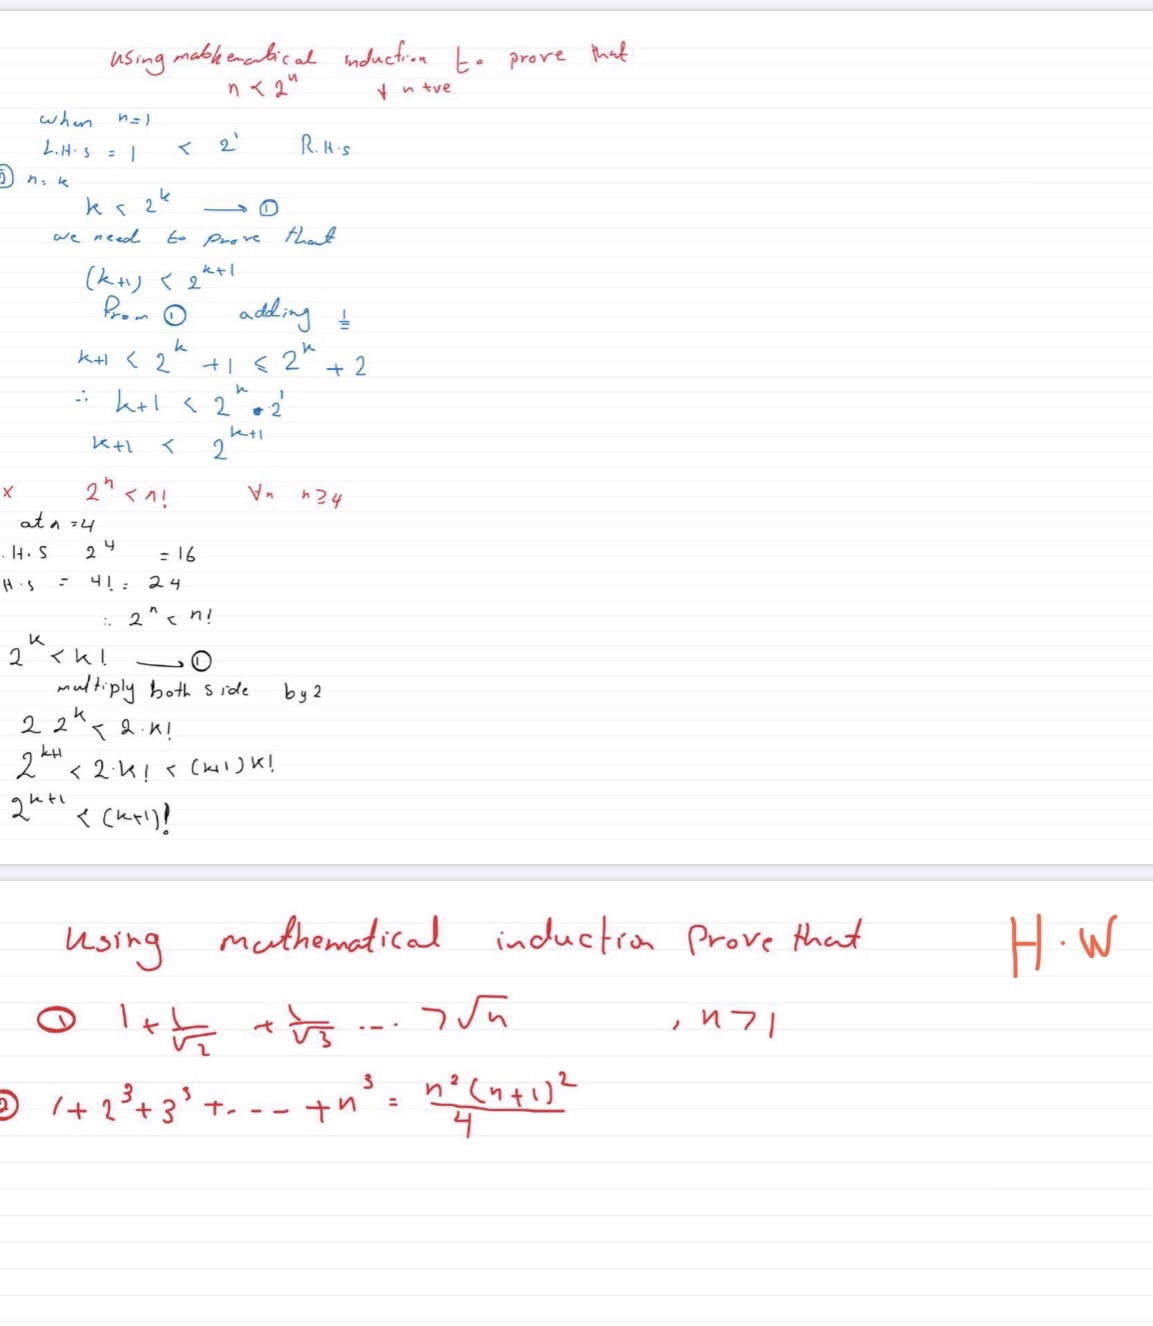 using mathematical induction to prove that
n < 2ⁿ ∀ n +ve
when n=1
L.H.S = 1 < 2¹ R.H.S
② n = k
k < 2ᵏ ⟶ ①
we need to prove that
(k+1) < 2ᵏ⁺¹
From ① adding 1
k+1 < 2ᵏ + 1 ≤ 2ᵏ + 2
∴ k+1 < 2ᵏ • 2¹
k+1 < 2ᵏ⁺¹
x 2ⁿ < n! ∀n n≥4
at n = 4
.H.S 2⁴ = 16
H.S = 4! = 24
∴ 2ⁿ < n!
2ᵏ < k! ⟶ ①
multiply both side by 2
2 2ᵏ < 2·k!
2ᵏ⁺¹ < 2·k! < (k+1)k!
2ᵏ⁺¹ < (k+1)!
using mathematical induction prove that H.W
① 1 + 1/√2 + 1/√3 .... > √n , n > 1
② 1 + 2³ + 3³ + .--- + n³ = n²(n+1)²/4